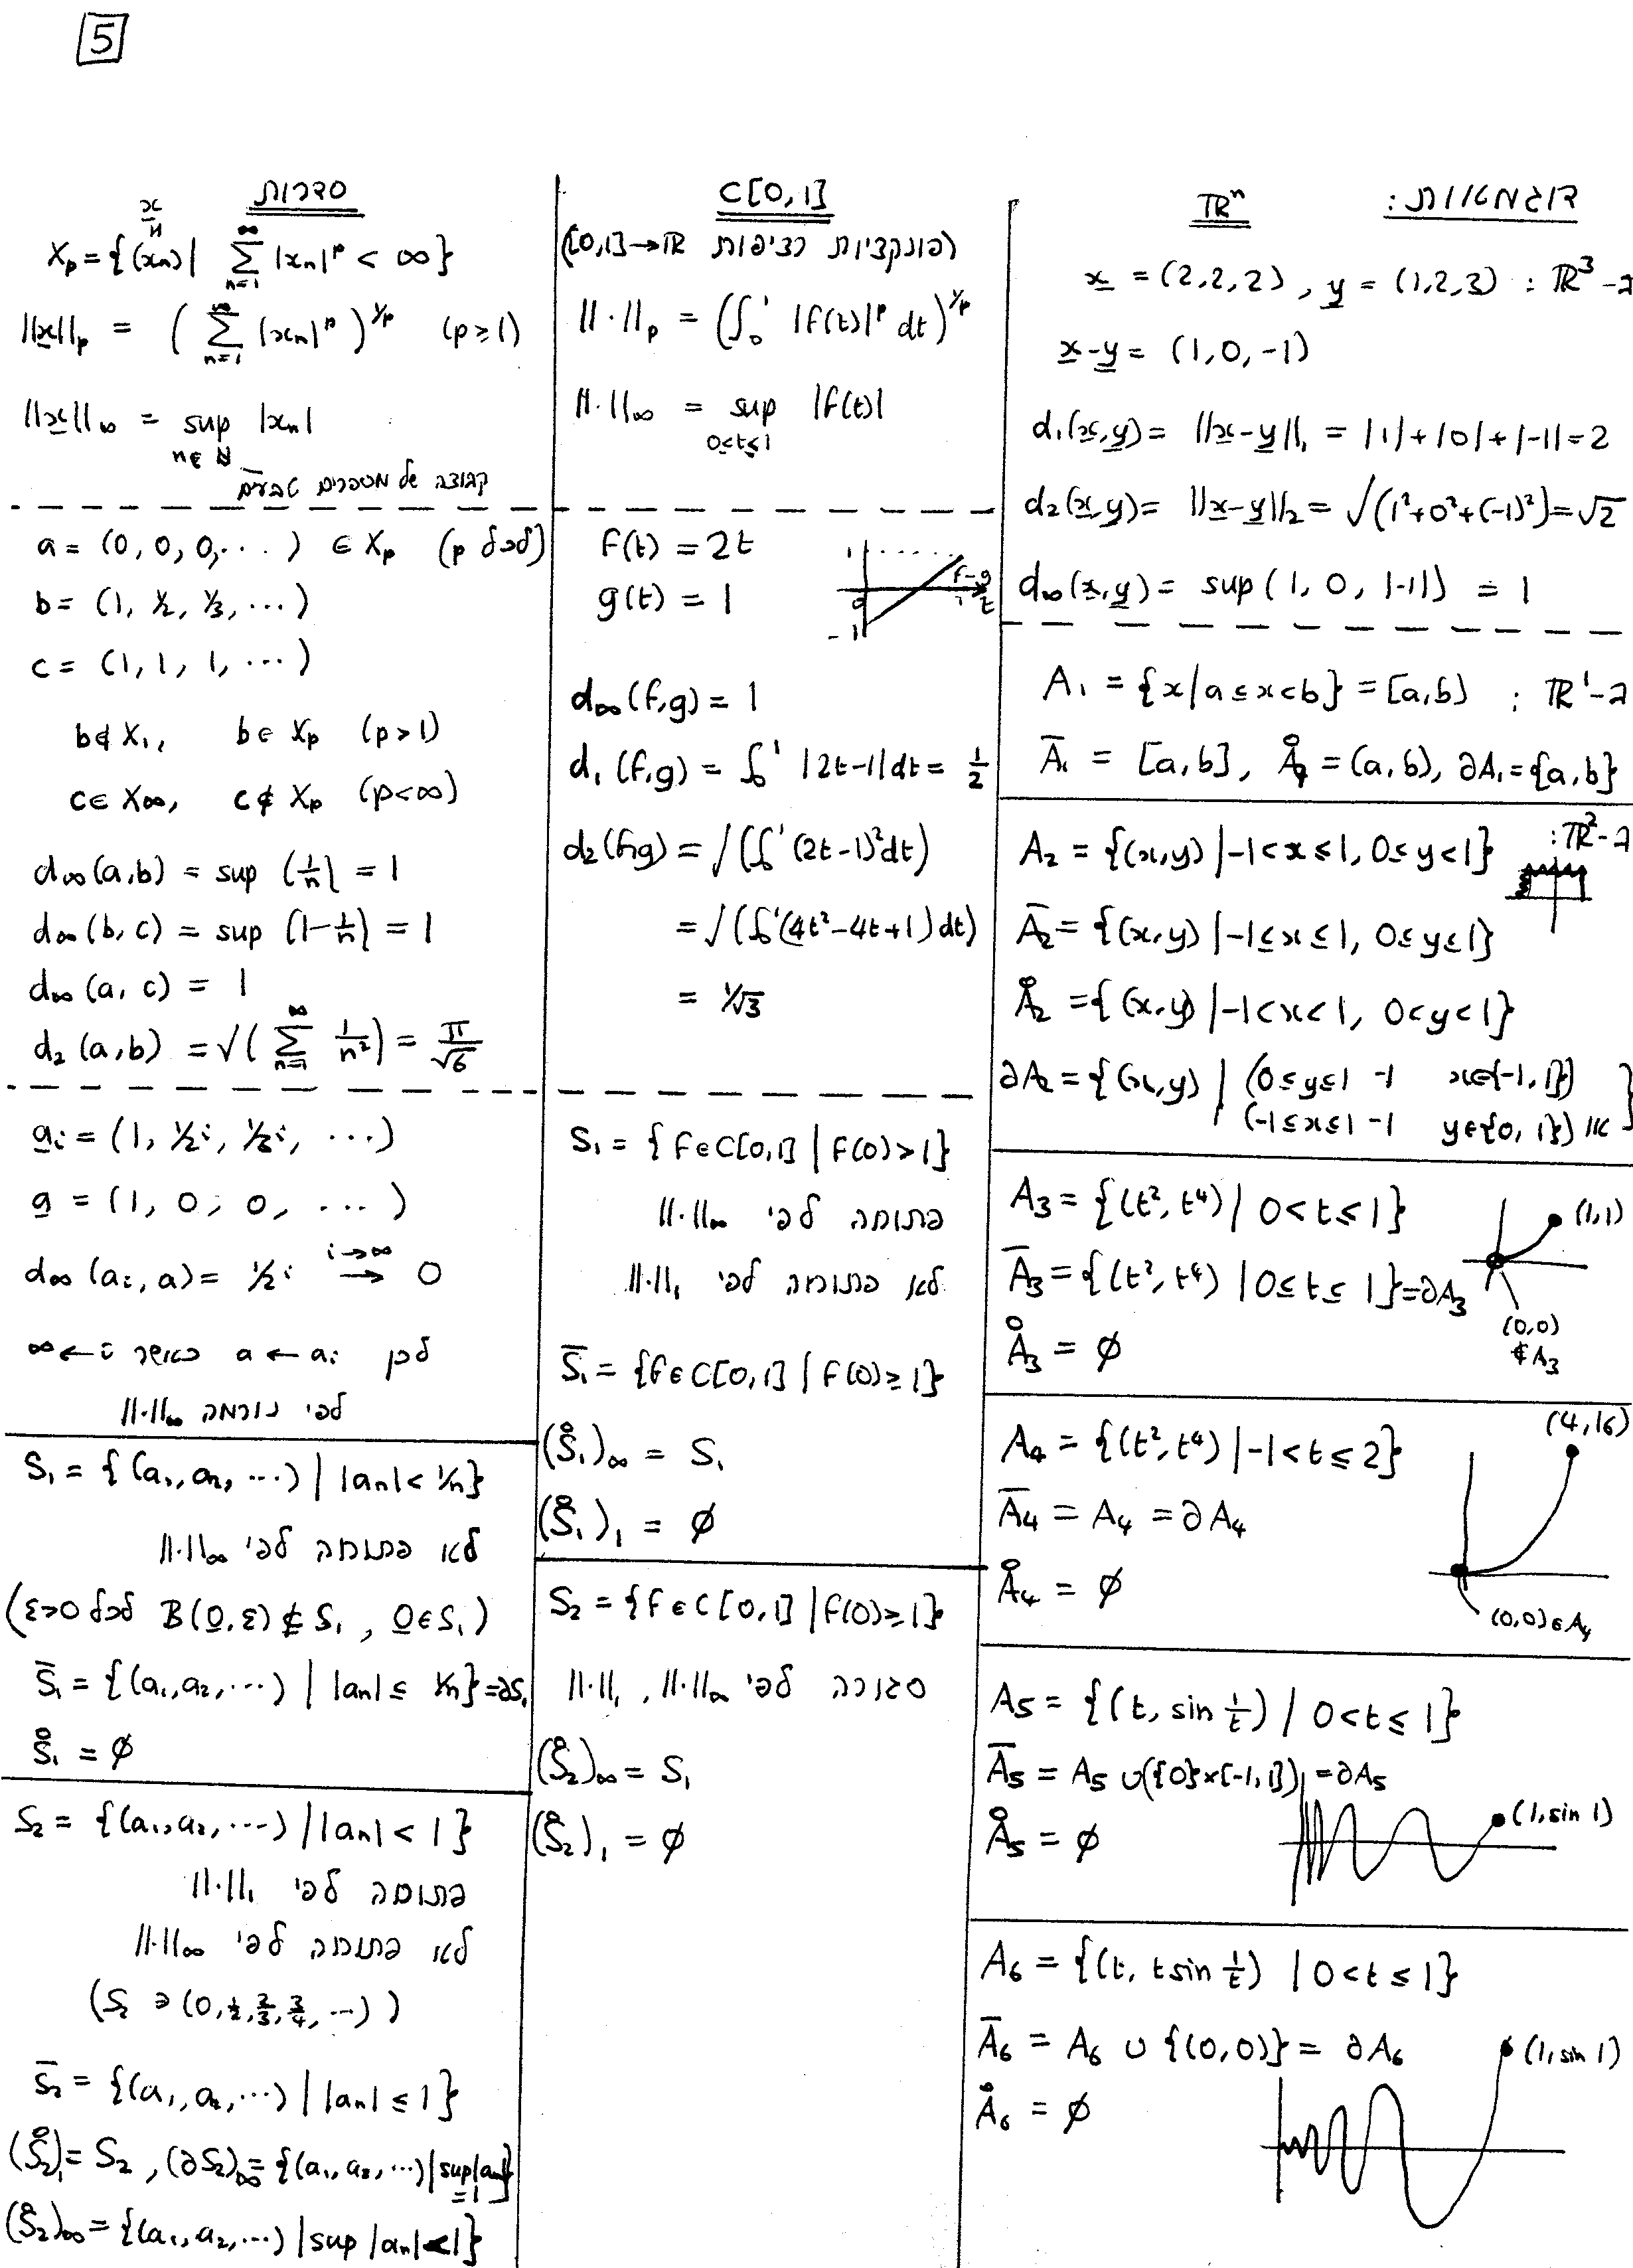 5
דוגמאות:
ℝⁿ
ב-ℝ³: x = (2,2,2), y = (1,2,3)
x-y = (1,0,-1)
d₁(x,y) = ||x-y||₁ = |1|+|0|+|-1| = 2
d₂(x,y) = ||x-y||₂ = √(1²+0²+(-1)²) = √2
d∞(x,y) = sup(1, 0, |-1|) = 1
ב-ℝ¹: A₁ = {x | a≤x<b} = [a,b)
A̅₁ = [a,b], Å₁ = (a,b), ∂A₁ = {a,b}
ב-ℝ²:
A₂ = {(x,y) | -1<x≤1, 0≤y<1}
A̅₂ = {(x,y) | -1≤x≤1, 0≤y≤1}
Å₂ = {(x,y) | -1<x<1, 0<y<1}
∂A₂ = {(x,y) | (0≤y≤1 -ו x∈{-1,1})
או (-1≤x≤1 -ו y∈{0,1})}
A₃ = {(t², t⁴) | 0<t≤1}
(1,1)
A̅₃ = {(t², t⁴) | 0≤t≤1} = ∂A₃
Å₃ = ∅
(0,0)
∉A₃
A₄ = {(t², t⁴) | -1<t≤2}
(4,16)
A̅₄ = A₄ = ∂A₄
Å₄ = ∅
(0,0)∈A₄
A₅ = {(t, sin 1/t) | 0<t≤1}
A̅₅ = A₅ ∪ ({0}×[-1,1]) = ∂A₅
Å₅ = ∅
(1, sin 1)
A₆ = {(t, t sin 1/t) | 0<t≤1}
A̅₆ = A₆ ∪ {(0,0)} = ∂A₆
(1, sin 1)
Å₆ = ∅
C[0,1]
(פונקציות רציפות [0,1]→ℝ)
||·||ₚ = (∫₀¹ |f(t)|ᵖ dt)^{1/p}
||·||∞ = sup |f(t)|
0≤t≤1
f(t) = 2t
g(t) = 1
1
f-g
0
1
t
-1
d∞(f,g) = 1
d₁(f,g) = ∫₀¹ |2t-1| dt = 1/2
d₂(f,g) = √(∫₀¹ (2t-1)² dt)
= √(∫₀¹ (4t²-4t+1) dt)
= 1/√3
S₁ = {f∈C[0,1] | f(0)>1}
פתוחה לפי ||·||∞
לא פתוחה לפי ||·||₁
S̅₁ = {f∈C[0,1] | f(0)≥1}
(S̊₁)∞ = S₁
(S̊₁)₁ = ∅
S₂ = {f∈C[0,1] | f(0)≥1}
סגורה לפי ||·||∞, ||·||₁
(S̊₂)∞ = S₁
(S̊₂)₁ = ∅
סדרות
x
Xₚ = {(xₙ) | ∑_{n=1}^∞ |xₙ|ᵖ < ∞}
||x||ₚ = (∑_{n=1}^∞ |xₙ|ᵖ)^{1/p} (p≥1)
||x||∞ = sup |xₙ|
n∈ℕ
קבוצה של מספרים טבעים
a = (0, 0, 0, ···) ∈ Xₚ (לכל p)
b = (1, 1/2, 1/3, ···)
c = (1, 1, 1, ···)
b∉X₁, b∈Xₚ (p>1)
c∈X∞, c∉Xₚ (p<∞)
d∞(a,b) = sup |1/n| = 1
d∞(b,c) = sup |1-1/n| = 1
d∞(a,c) = 1
d₂(a,b) = √(∑_{n=1}^∞ 1/n²) = π/√6
aᵢ = (1, 1/2ⁱ, 1/3ⁱ, ···)
a = (1, 0, 0, ...)
d∞(aᵢ,a) = 1/2ⁱ → 0 (i→∞)
לכן aᵢ → a כאשר i → ∞
לפי נורמה ||·||∞
S₁ = {(a₁, a₂, ···) | |aₙ| < 1/n}
לא פתוחה לפי ||·||∞
(0∈S₁, B(0,ε)⊄S₁ לכל ε>0)
S̅₁ = {(a₁,a₂,···) | |aₙ| ≤ 1/n} = ∂S₁
S̊₁ = ∅
S₂ = {(a₁,a₂,···) | |aₙ| < 1}
פתוחה לפי ||·||₁
לא פתוחה לפי ||·||∞
(S₂ ∋ (0, 1/2, 2/3, 3/4, ···))
S̅₂ = {(a₁, a₂, ···) | |aₙ| ≤ 1}
(S̊₂)₁ = S₂, (∂S₂)∞ = {(a₁, a₂, ···) | sup|aₙ| = 1}
(S̊₂)∞ = {(a₁, a₂, ···) | sup |aₙ| < 1}